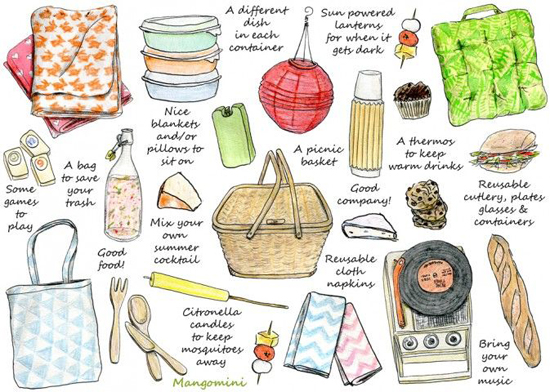 A different
dish
in each
container
Sun powered
lanterns
for when it
gets dark
Nice
blankets
and/or
pillows to
sit on
A picnic
basket
A thermos
to keep
warm drinks
Some
games
to
play
A bag
to save
your
trash
Good
company!
Reusable
cutlery, plates
glasses &
containers
Good
food!
Mix your
own
summer
cocktail
Reusable
cloth
napkins
Citronella
candles
to keep
mosquitoes
away
Bring
your
own
music
Mangomini